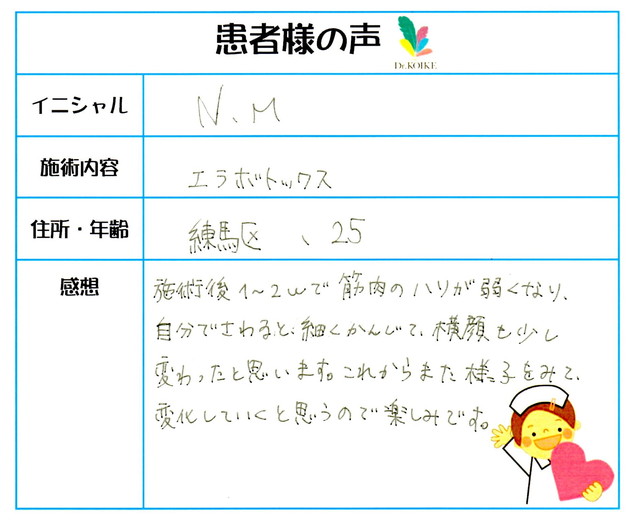 患者様の声
Dr.KOIKE
イニシャル N、M
施術内容 エラボトックス
住所・年齢 練馬区、25
感想
施術後1~2wで筋肉のハリが弱くなり、
自分でさわると、細くかんじて、横顔も少し
変わったと思います。これからまた様子をみて、
変化していくと思うので楽しみです。